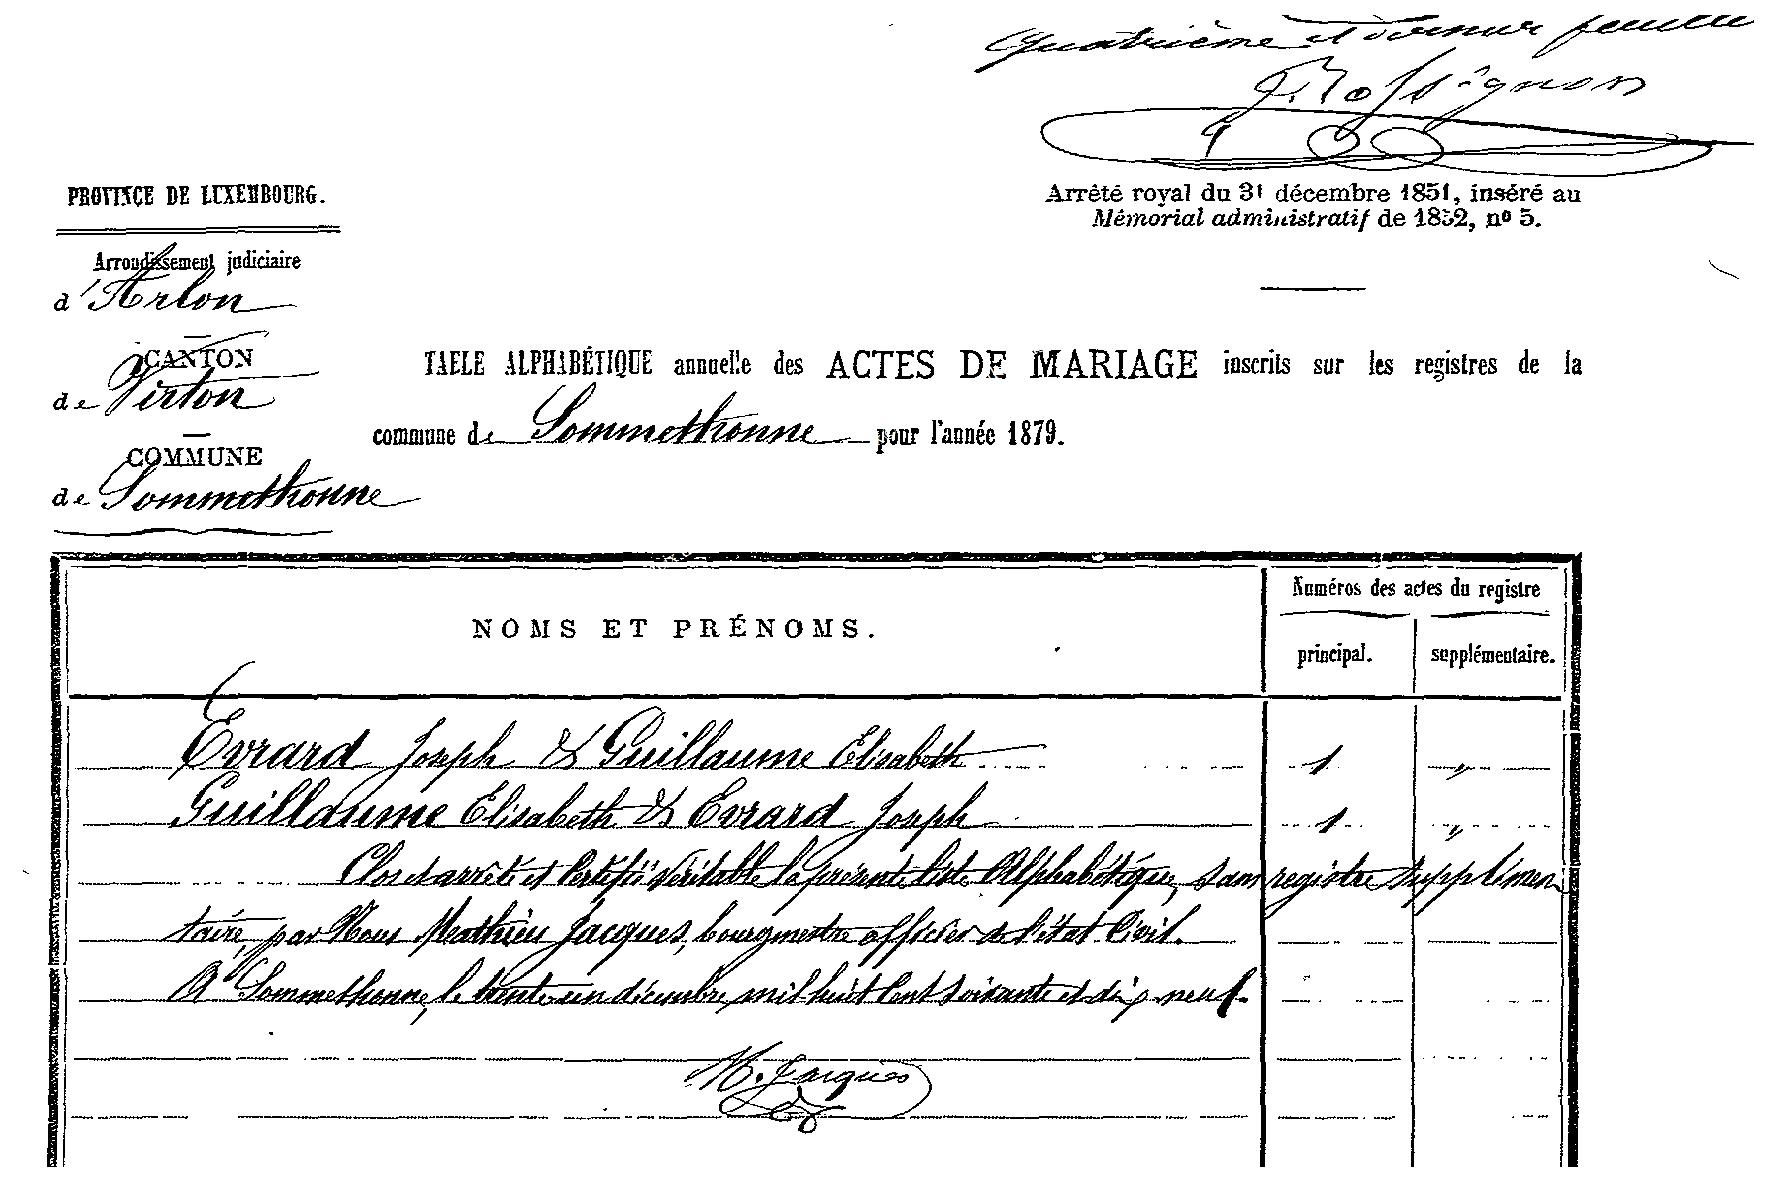 Quatrième et dernier feuillet
J. Rossignon
PROVINCE DE LUXEMBOURG.
Arrêté royal du 31 décembre 1851, inséré au
Mémorial administratif de 1852, nº 5.
Arrondissement judiciaire
d'Arlon
CANTON
de Virton
COMMUNE
de Sommethonne
TABLE ALPHABÉTIQUE annuelle des ACTES DE MARIAGE inscrits sur les registres de la
commune de Sommethonne pour l'année 1879.
NOMS ET PRÉNOMS.
Numéros des actes du registre
principal.
supplémentaire.
Evrard Joseph & Guillaume Elisabeth 1 "
Guillaume Elisabeth & Evrard Joseph 1 "
Clos et arrêté et Certifié véritable la présente liste Alphabétique, sans registre supplémen
taire, par Nous Mathieu Jacques, bourgmestre officier de l'état Civil.
A Sommethonne, le trente un décembre mil huit Cent soixante et dix neuf.
M. Jacques